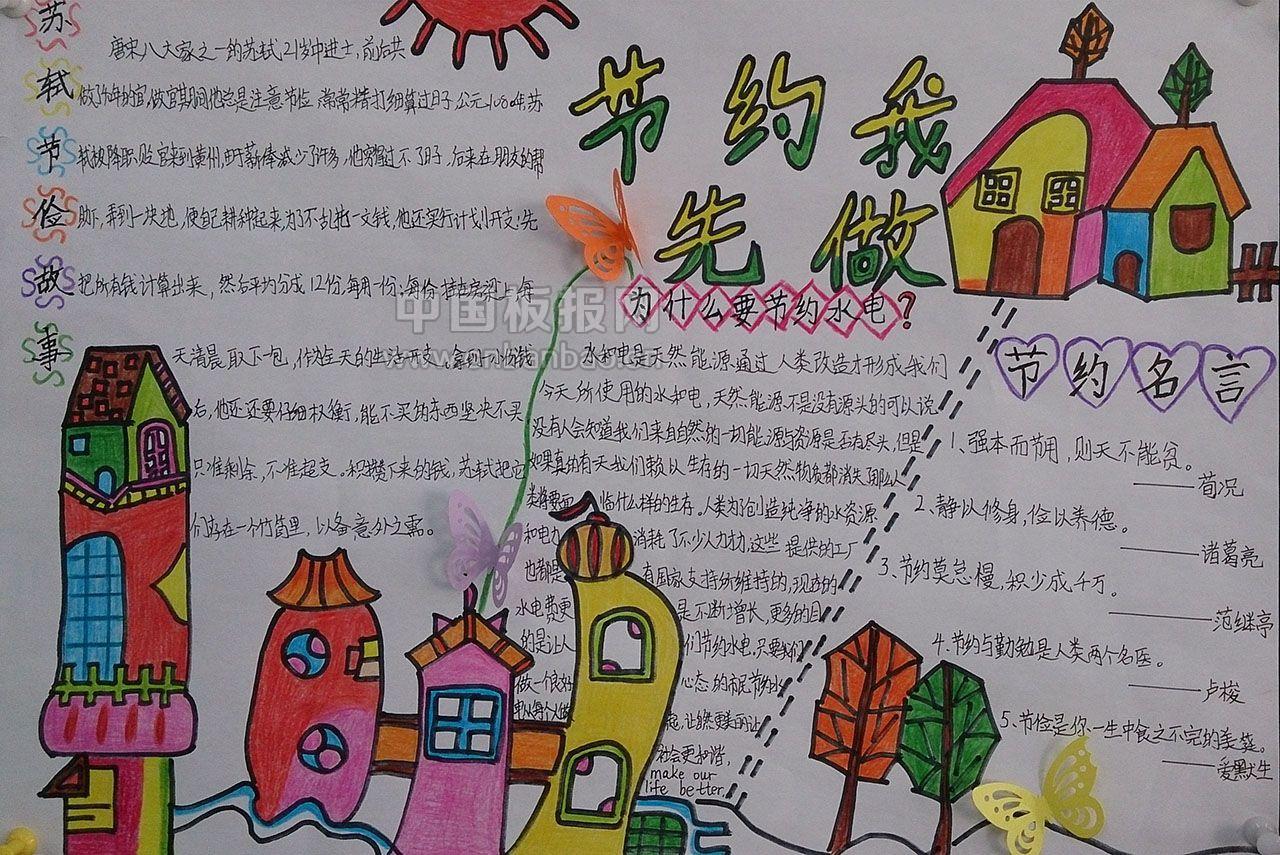 苏轼节俭故事
唐宋八大家之一的苏轼21岁中进士，前后共
做了40年的官，做官期间他总是注意节俭，常常精打细算过日子。公元1080年，苏
轼被降职贬官来到黄州，由于薪俸减少了许多，他穷得过不了日子，后来在朋友的帮
助下，弄到一块地，便自己耕种起来，为了不乱花一文钱，他还实行计划开支：先
把所有钱计算出来，然后平均分成12份，每月一份；每份
天清晨取下一包，作为全天的生活开支。拿到一小份钱
后，他还还要仔细权衡，能不买的东西坚决不买
只准剩余，不准超支。积攒下来的钱，苏轼把它
们存在一个竹筒里，以备意外之需。
节约我
先做
为什么要节约水电？
水和电是天然能源通过人类改造才形成，我们
今天所使用的水和电，天然能源不是没有源头的可以说
没有人会知道我们来自自然的一切能源与资源是否有尽头，但是
如果真的有天我们赖以生存的一切天然物质都消失，那么人
类将要面临什么样的生存。人类为了创造纯净的水资源
和电力 消耗了不少人力物力，这些提供的工厂
也都是 有国家支持纷维持的，现在的
水电费更 是不断增长，更多的目
的是让人 们节约水电，只要我们
做一个良好 心态的市民节约水
电从每个人做 起，让自然更美丽让
社会更和谐，
make our
life better.
节约名言
1、强本而节用，则天不能贫。
——荀况
2、静以修身，俭以养德。
——诸葛亮
3、节约莫怠慢，积少成千万。
——范继亭
4、节约与勤勉是人类两个名医。
——卢梭
5、节俭是你一生中食之不完的美筵。
——爱默生
中国板报网